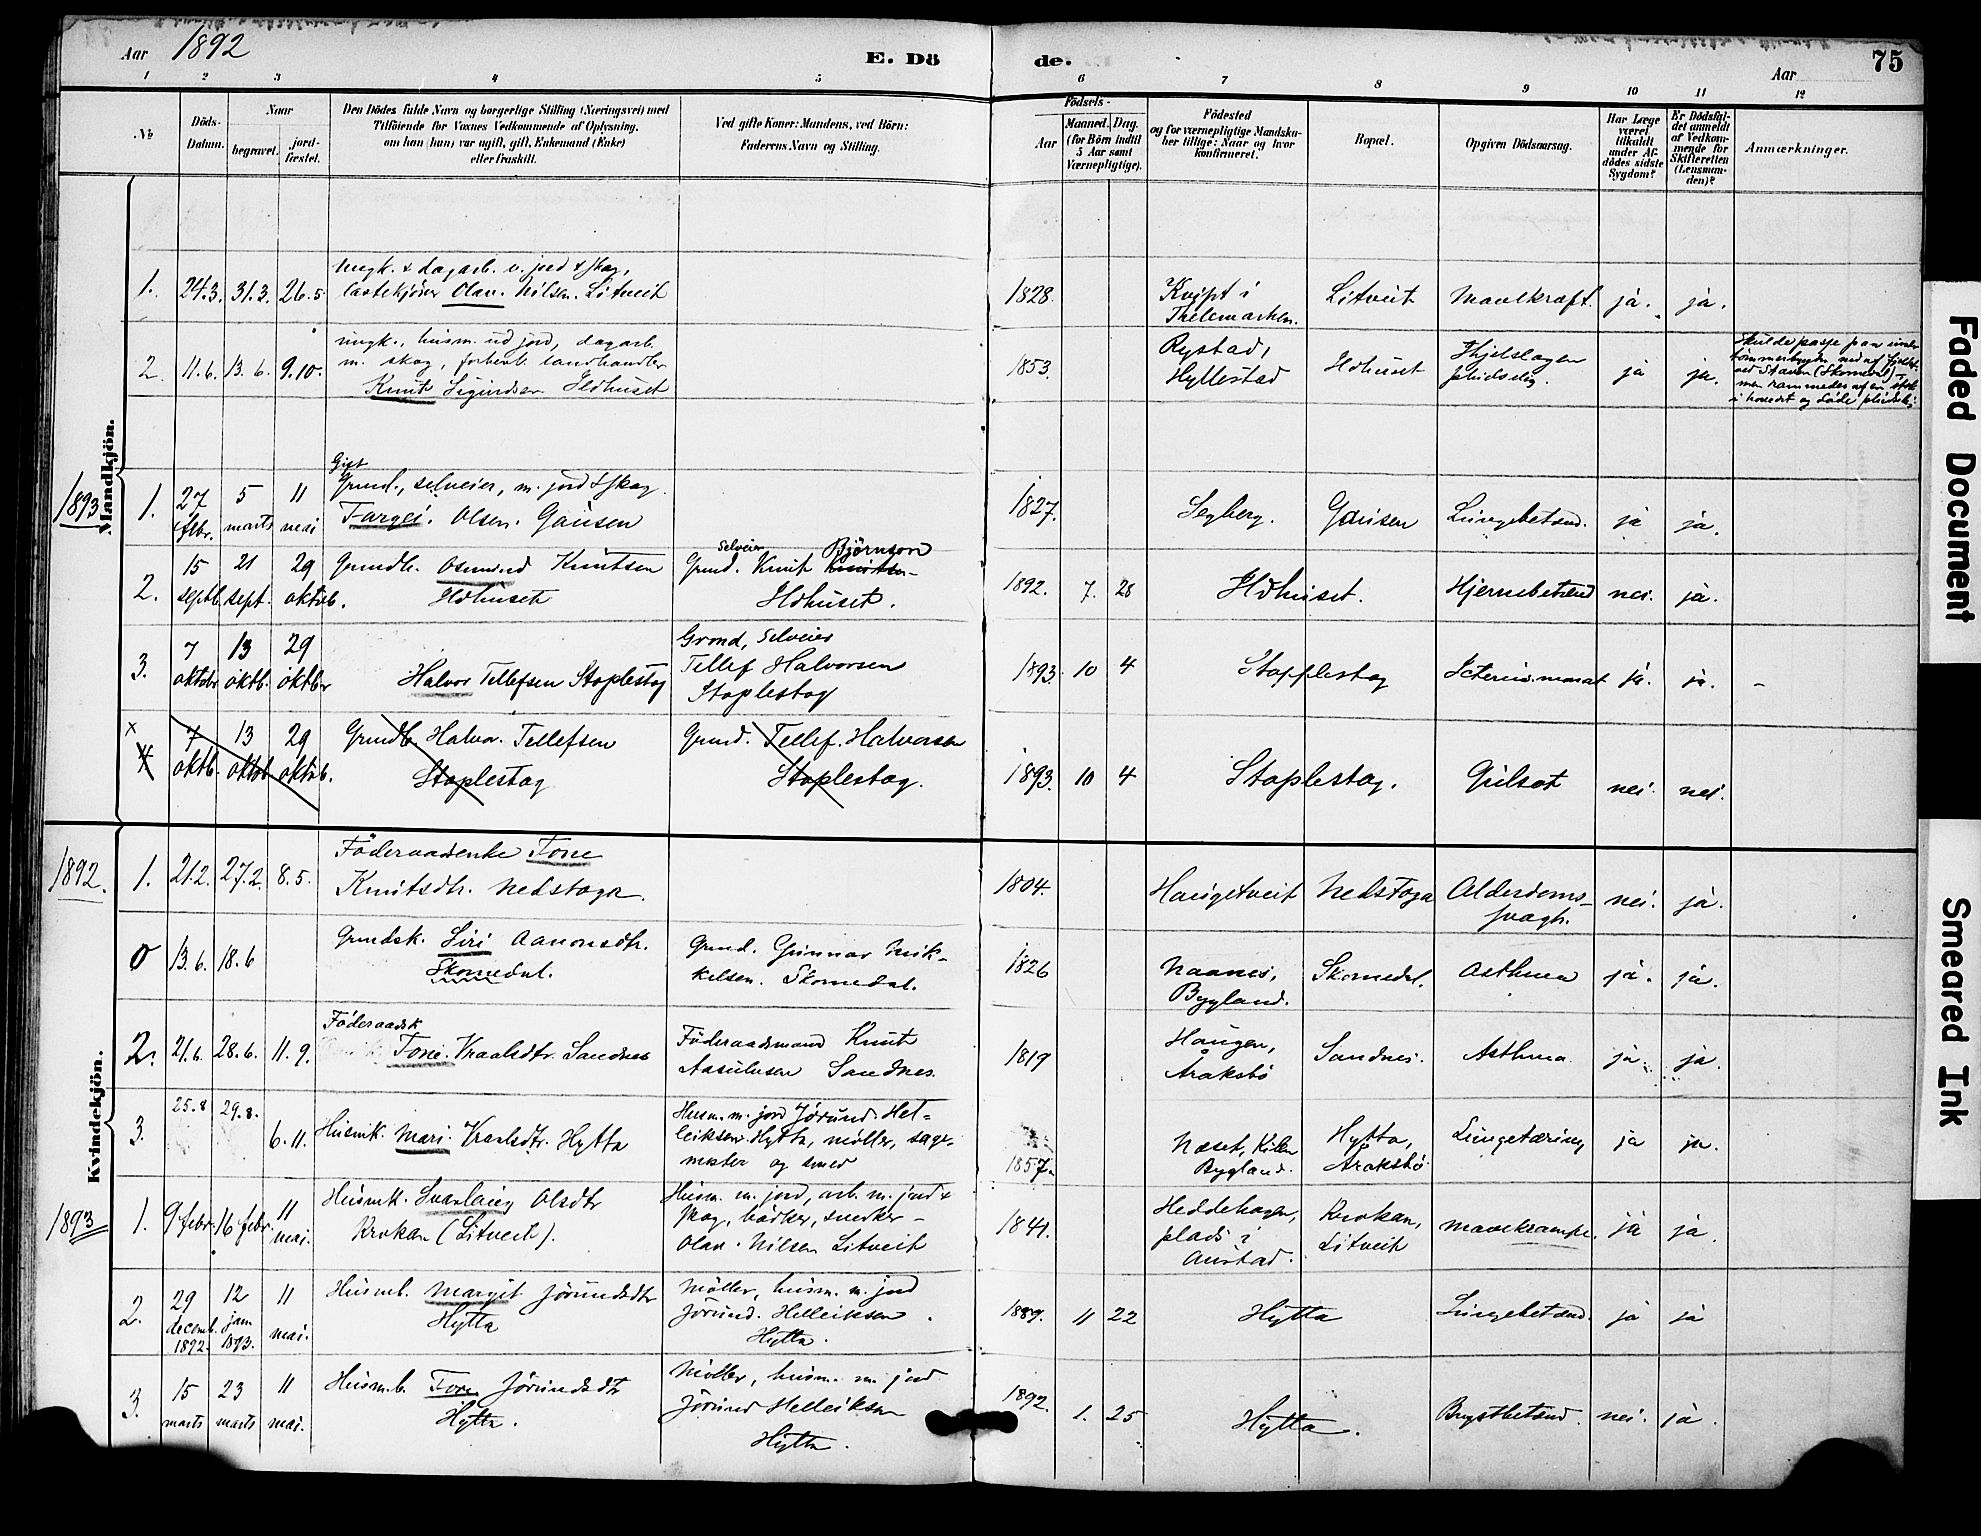 Aar 1892
E. Dö
de.
Aar
75
1 2 3 4 5 6 7 8 9 10 11 12
No
Döds-
Datum.
Naar
begravet.
jord-
fæstet.
Den Dödes fulde Navn og borgerlige Stilling (Næringsvei) med
Tilföiende for Voxnes Vedkommende af Oplysning,
om han (hun) var ugift, gift, Enkemand (Enke)
eller fraskilt.
Ved gifte Koner: Mandens, ved Börn:
Faderens Navn og Stilling.
Födsels-
Aar
Maaned. Dag.
(for Börn indtil
5 Aar samt
Værnepligtige).
Födested
og for værnepligtige Mandska-
ber tillige: Naar og hvor
konfirmeret.
Bopæl.
Opgiven Dödsaarsag.
Har Læge
været
tilkaldt
under Af-
dödes sidste
Sygdom?
Er Dödsfal-
det anmeldt
af Vedkom-
mende for
Skifteretten
(Lensman-
den)?
Anmærkninger.
Mandkjön.
1. 24.3. 31.3. 26.5
ungk. + dagarb. v. jord + skog,
Olav. Nilsen. Litveit
1828. i
Thelemarken.
Litveit ja. ja.
2. 11.6. 13.6. 9.10.
ungk., husm. ud jord, dagarb.
m. skog, forhenv. landhandler
Knut Sigurdsen Ildhuset
1853.
Rystad,
Hyllestad
Ildhuset
ja ja.
1893
1. 27 febr. 5 marts 11 mai
Gift
Grund., selveier, m. jord + skog.
Targei. Olsen. Gausen
1827. Gausen Lungebetænd. ja ja.
2. 15 septb. 21 sept. 29 oktob.
Grundb. Osmund Knutsen
Ildhuset
Selveier Björnson
Grund. Knut Knutsen
Ildhuset.
1892. 7. 28 Ildhuset. Hjernebetænd nei. ja.
3. 7 oktobr 13 oktb. 29 oktbr
Halvor Tellefsen Staplestog
Grond, Selveier
Tellef Halvorsen
Staplestog
1893. 10 4 Stapplestog ja. ja. –
x
4 7 oktb. 13 oktob 29 oktob.
Grundb. Halvor. Tellefsen
Staplestog
Grund. Tellef. Halvorsen
Staplestog.
1893. 10 4 Staplestog. Gulsot nei. nei.
Kvindekjön.
1892.
1. 21.2. 27.2. 8.5.
Föderaadsenke Tone
Knutsdtr. Nedstoga
1804. Haugetveit Nedstoga Alderdoms-
svagh.
nei. ja.
0 13.6. 18.6
Grundsk. Siri Aanonsdtr.
Skomedal.
Grund. Gunnar Mik-
kelsen. Skomedal.
1826 Naanes,
Bygland.
Skomedal. Asthma ja. ja.
2. 21.6. 28.6. 11.9.
Föderaadsk
Tone. Vraalsdtr. Sandnes
Föderaadsmand Knut
Aasulvsen Sandnes.
1819 Haugen,
Åraksbö
Sandnes. Asthma ja. ja
3. 25.8 29.8. 6.11.
Husmk. Mari. Vraalsdtr. Hytta
Husm. m. jord Jörund. Hel-
leiksen Hytta, möller, sage-
mester og smed
1857. Næset, Kilen
Bygland.
Hytta,
Åraksbö
Lungetæring ja ja.
1893
1. 9 febr. 16 febr. 11 mai.
Husmk. Svanlaug Olsdtr
Krokan (Litveit).
Husm. m. jord, arb. m. jord +
skog, bödker, snedker –
Olav. Nilsen Litveit
1841. Heddehagen,
plads i
Austad.
Krokan,
Litveit
mavekrampe. ja ja.
2. 29 decemb. 1892. 12 jan 1893. 11 mai.
Husmb. Margit Jörundsdtr
Hytta
Möller, husm. m. jord
Jörund. Helleiksen.
Hytta.
1889. 11 22 Hytta Lungebetænd. ja ja
3. 15 marts 23 marts 11 mai.
Husmb. Tone Jörundsdtr
Hytta.
Möller, husm. m. jord
Jörund Helleiksen
Hytta.
1892. 1. 25 Hytta. Brystbetænd. nei. ja.
Faded Document
Smeared Ink